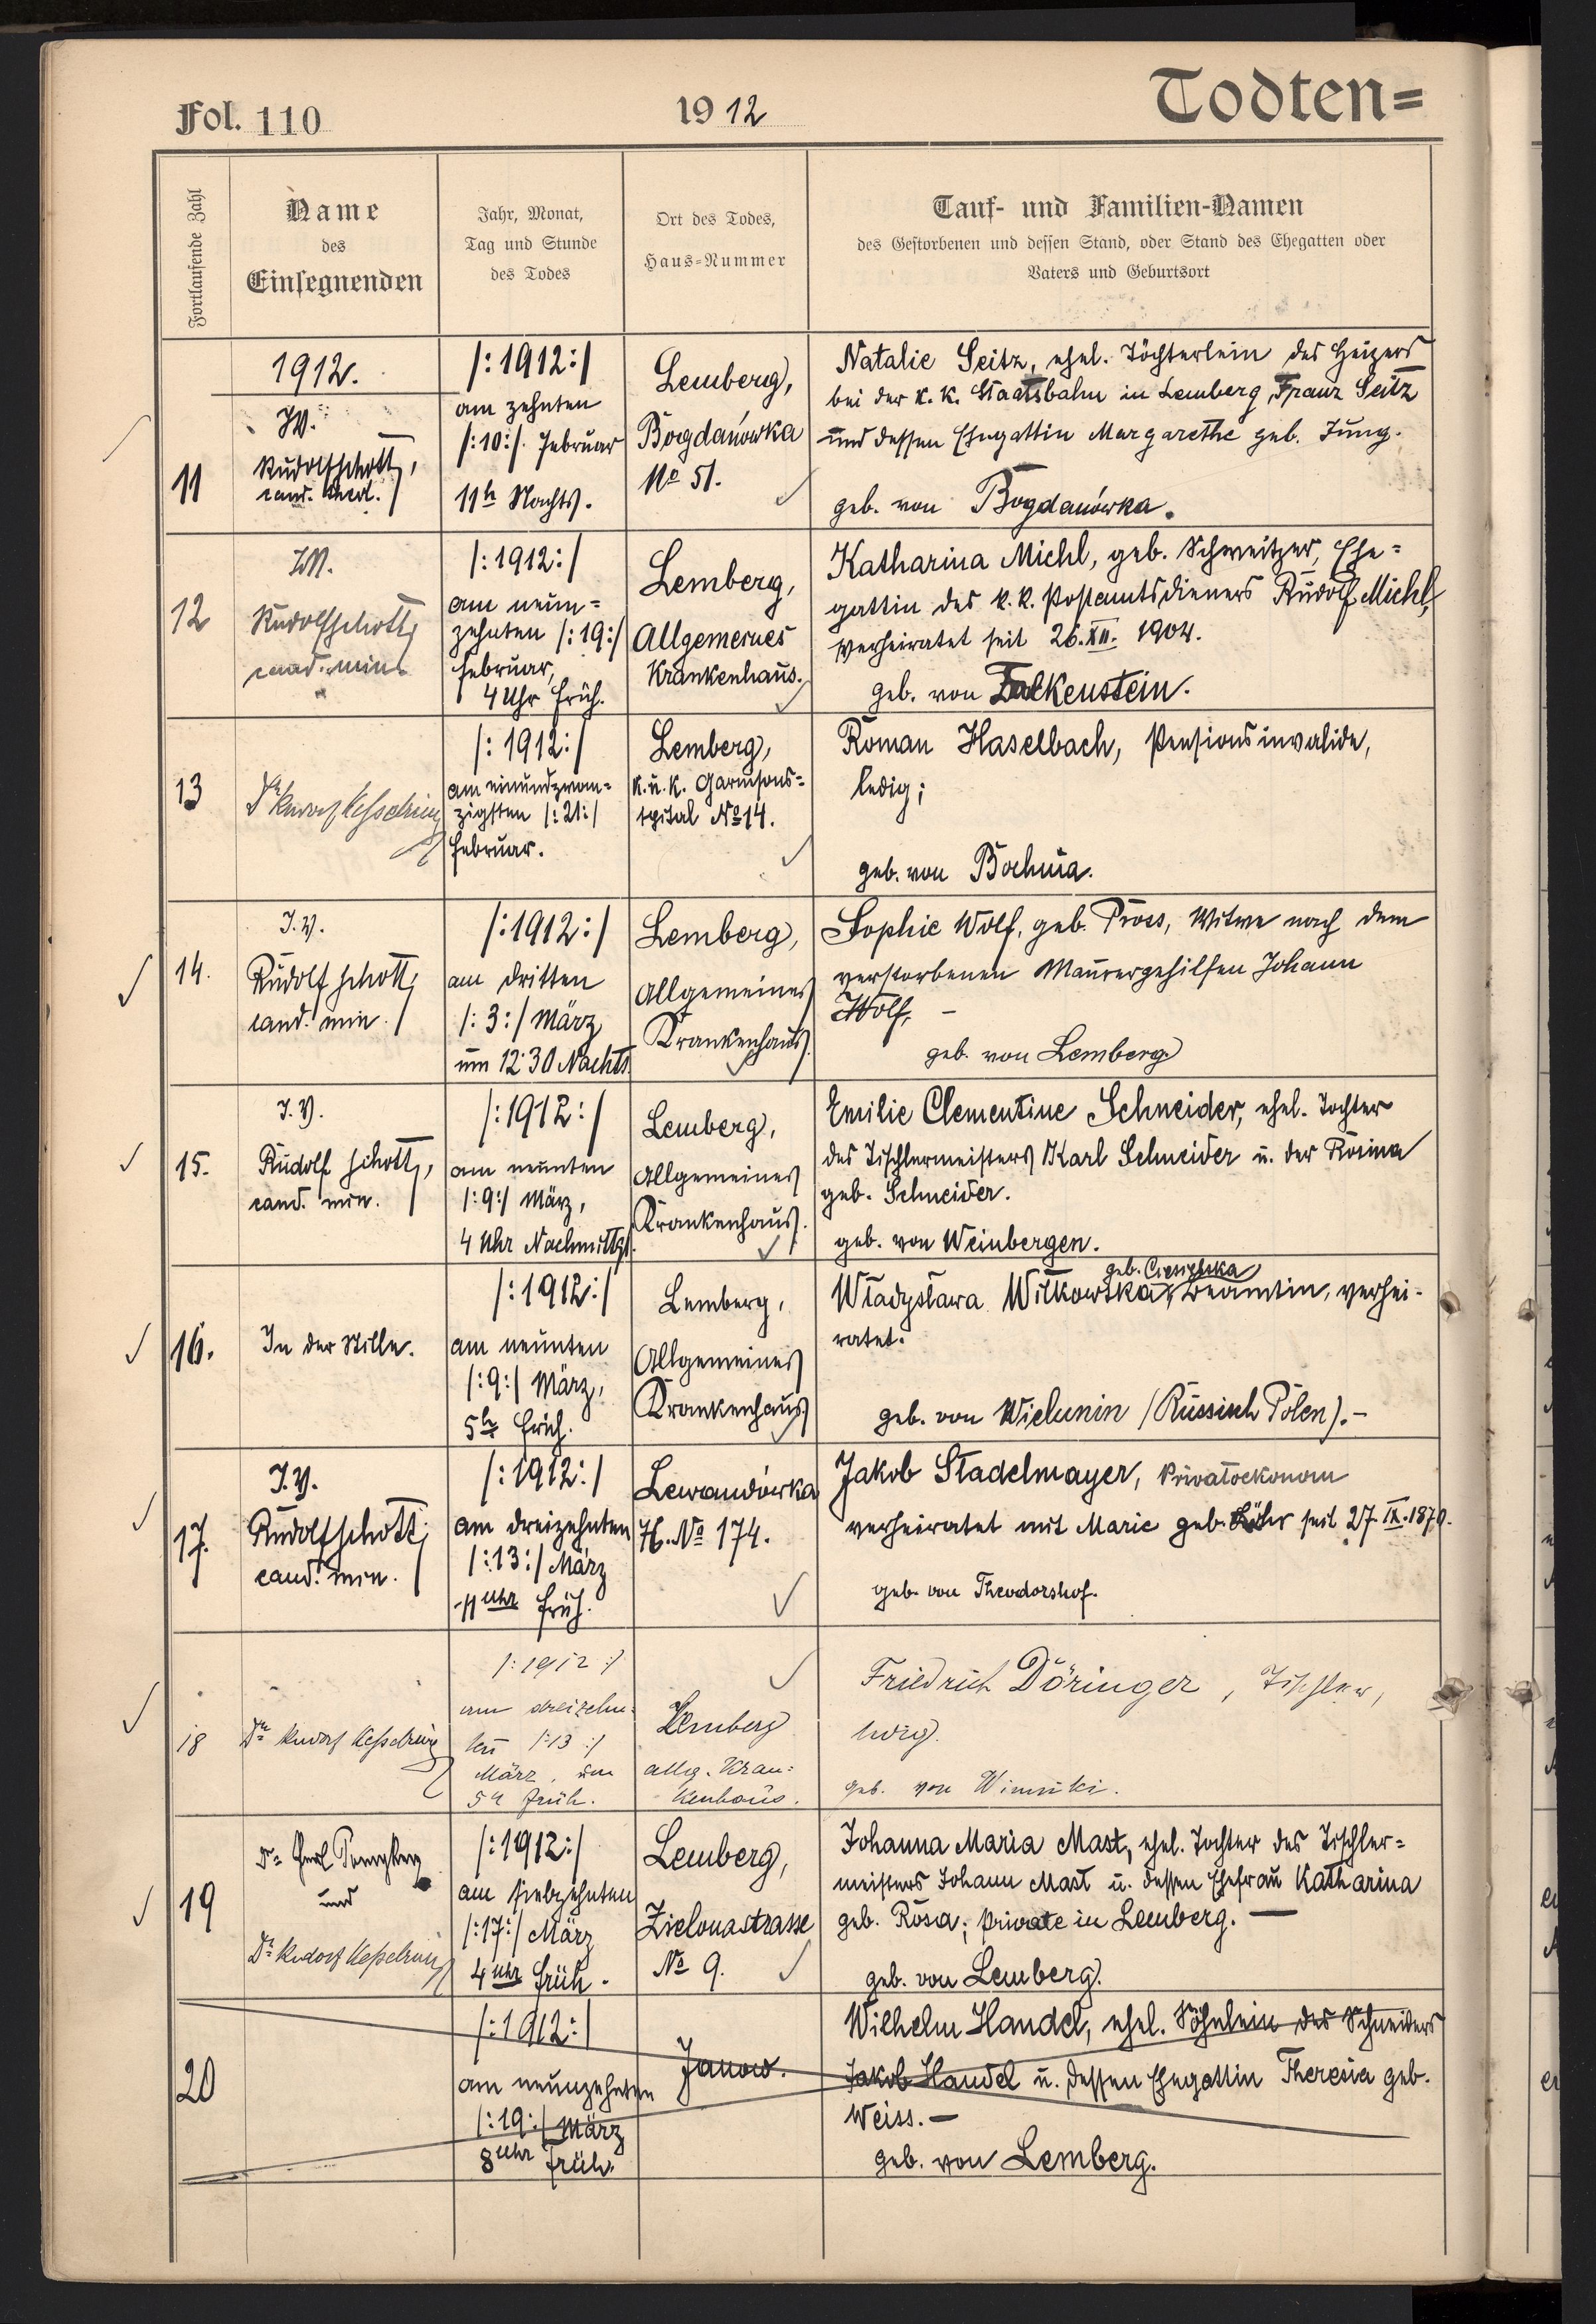 Fol. 110
1912
Todten=
Fortlaufende Zahl
Name
des
Einsegnenden
Jahr, Monat,
Tag und Stunde
des Todes
Ort des Todes,
Haus=Nummer
Tauf- und Familien-Namen
des Gestorbenen und dessen Stand, oder Stand des Ehegatten oder
Vaters und Geburtsort
11
1912.
I.V.
Rudolf Schott,
cand.
/:1912:/
am zehnten
/:10:/. Februar
11h Nachts.
Lemberg,
Bogdanówka
No 51.
Natalie Seitz, ehel. Töchterlein des Heizers
bei der k. k. Staatsbahn in Lemberg, Franz Seitz
und dessen Ehegattin Margarethe geb. Jung.
geb. von Bogdanówka.
12
I.V.
Rudolf Schott,
cand. min.
/:1912:/
am neun=
zehnten /:19:/
Februar,
4 Uhr früh.
Lemberg,
Allgemeines
Krankenhaus.
Katharina Michl, geb. Schweitzer, Ehe=
gattin des k. k. Postamtsdieners Rudolf Michl,
verheiratet seit 26. XII. 1904.
geb. von Falkenstein.
13
Dr Rudolf Kesselring
/:1912:/
am einundzwan=
zigsten /:21:/
Februar.
Lemberg,
k. u. k. Garnisons=
spital No 14.
Roman Haselbach, Pensionsinvalide,
ledig;
geb. von Bochnia.
14.
I.V.
Rudolf Schott,
cand. min.
/:1912:/
am dritten
/:3:/ März
um 12·30 Nachts
Lemberg,
Allgemeines
Krankenhaus.
Sophie Wolf, geb. Pross, Witwe nach dem
verstorbenen Maurergehilfen Johann
Wolf. –
geb. von Lemberg
15.
I.V.
Rudolf Schott,
cand. min.
/:1912:/
am neunten
/:9:/ März,
4 Uhr Nachmittgs.
Lemberg,
Allgemeines
Krankenhaus.
Emilie Clementine Schneider, ehel. Tochter
des Tischlermeisters Karl Schneider u. der Rosina
geb. Schneider.
geb. von Weinbergen.
16.
In der Stille.
/:1912:/
am neunten
/:9:/ März,
5h früh.
Lemberg,
Allgemeines
Krankenhaus
geb.
Władysława Witkowska, Beamtin, verhei-
ratet.
geb. von Wielunin (Russisch Polen). –
17.
I.V.
Rudolf Schott,
cand. min.
/:1912:/
am dreizehnten
/:13:/ März
11 Uhr früh.
Lewandówka
H. No 174.
Jakob Stadelmayer, Privatoekonom
verheiratet mit Marie geb. seit 27. IX. 1879.
geb. von Theodorshof.
18
Dr Rudolf Kesselring
/:1912:/
am dreizehn=
ten /:13:/
März, um
5h früh.
Lemberg
allg. Kran=
kenhaus.
Friedrich Döringer, Tischler,
ledig.
geb. von Winniki.
19
Dr
und
Dr Rudolf Kesselring
/:1912:/
am siebzehnten
/:17:/ März
4 Uhr früh.
Lemberg,
Zielonastrasse
No 9.
Johanna Maria Mast, ehel. Tochter des Tischler=
meisters Johann Mast u. dessen Ehefrau Katharina
geb. Rosa; Private in Lemberg. —
geb. von Lemberg.
20
/:1912:/
am neunzehnten
/:19:/ März
8 Uhr früh.
Janow.
Wilhelm Handel, ehel. Söhnlein des Schneiders
Jakob Handel u. dessen Ehegattin Theresia geb.
Weiss. —
geb. von Lemberg.